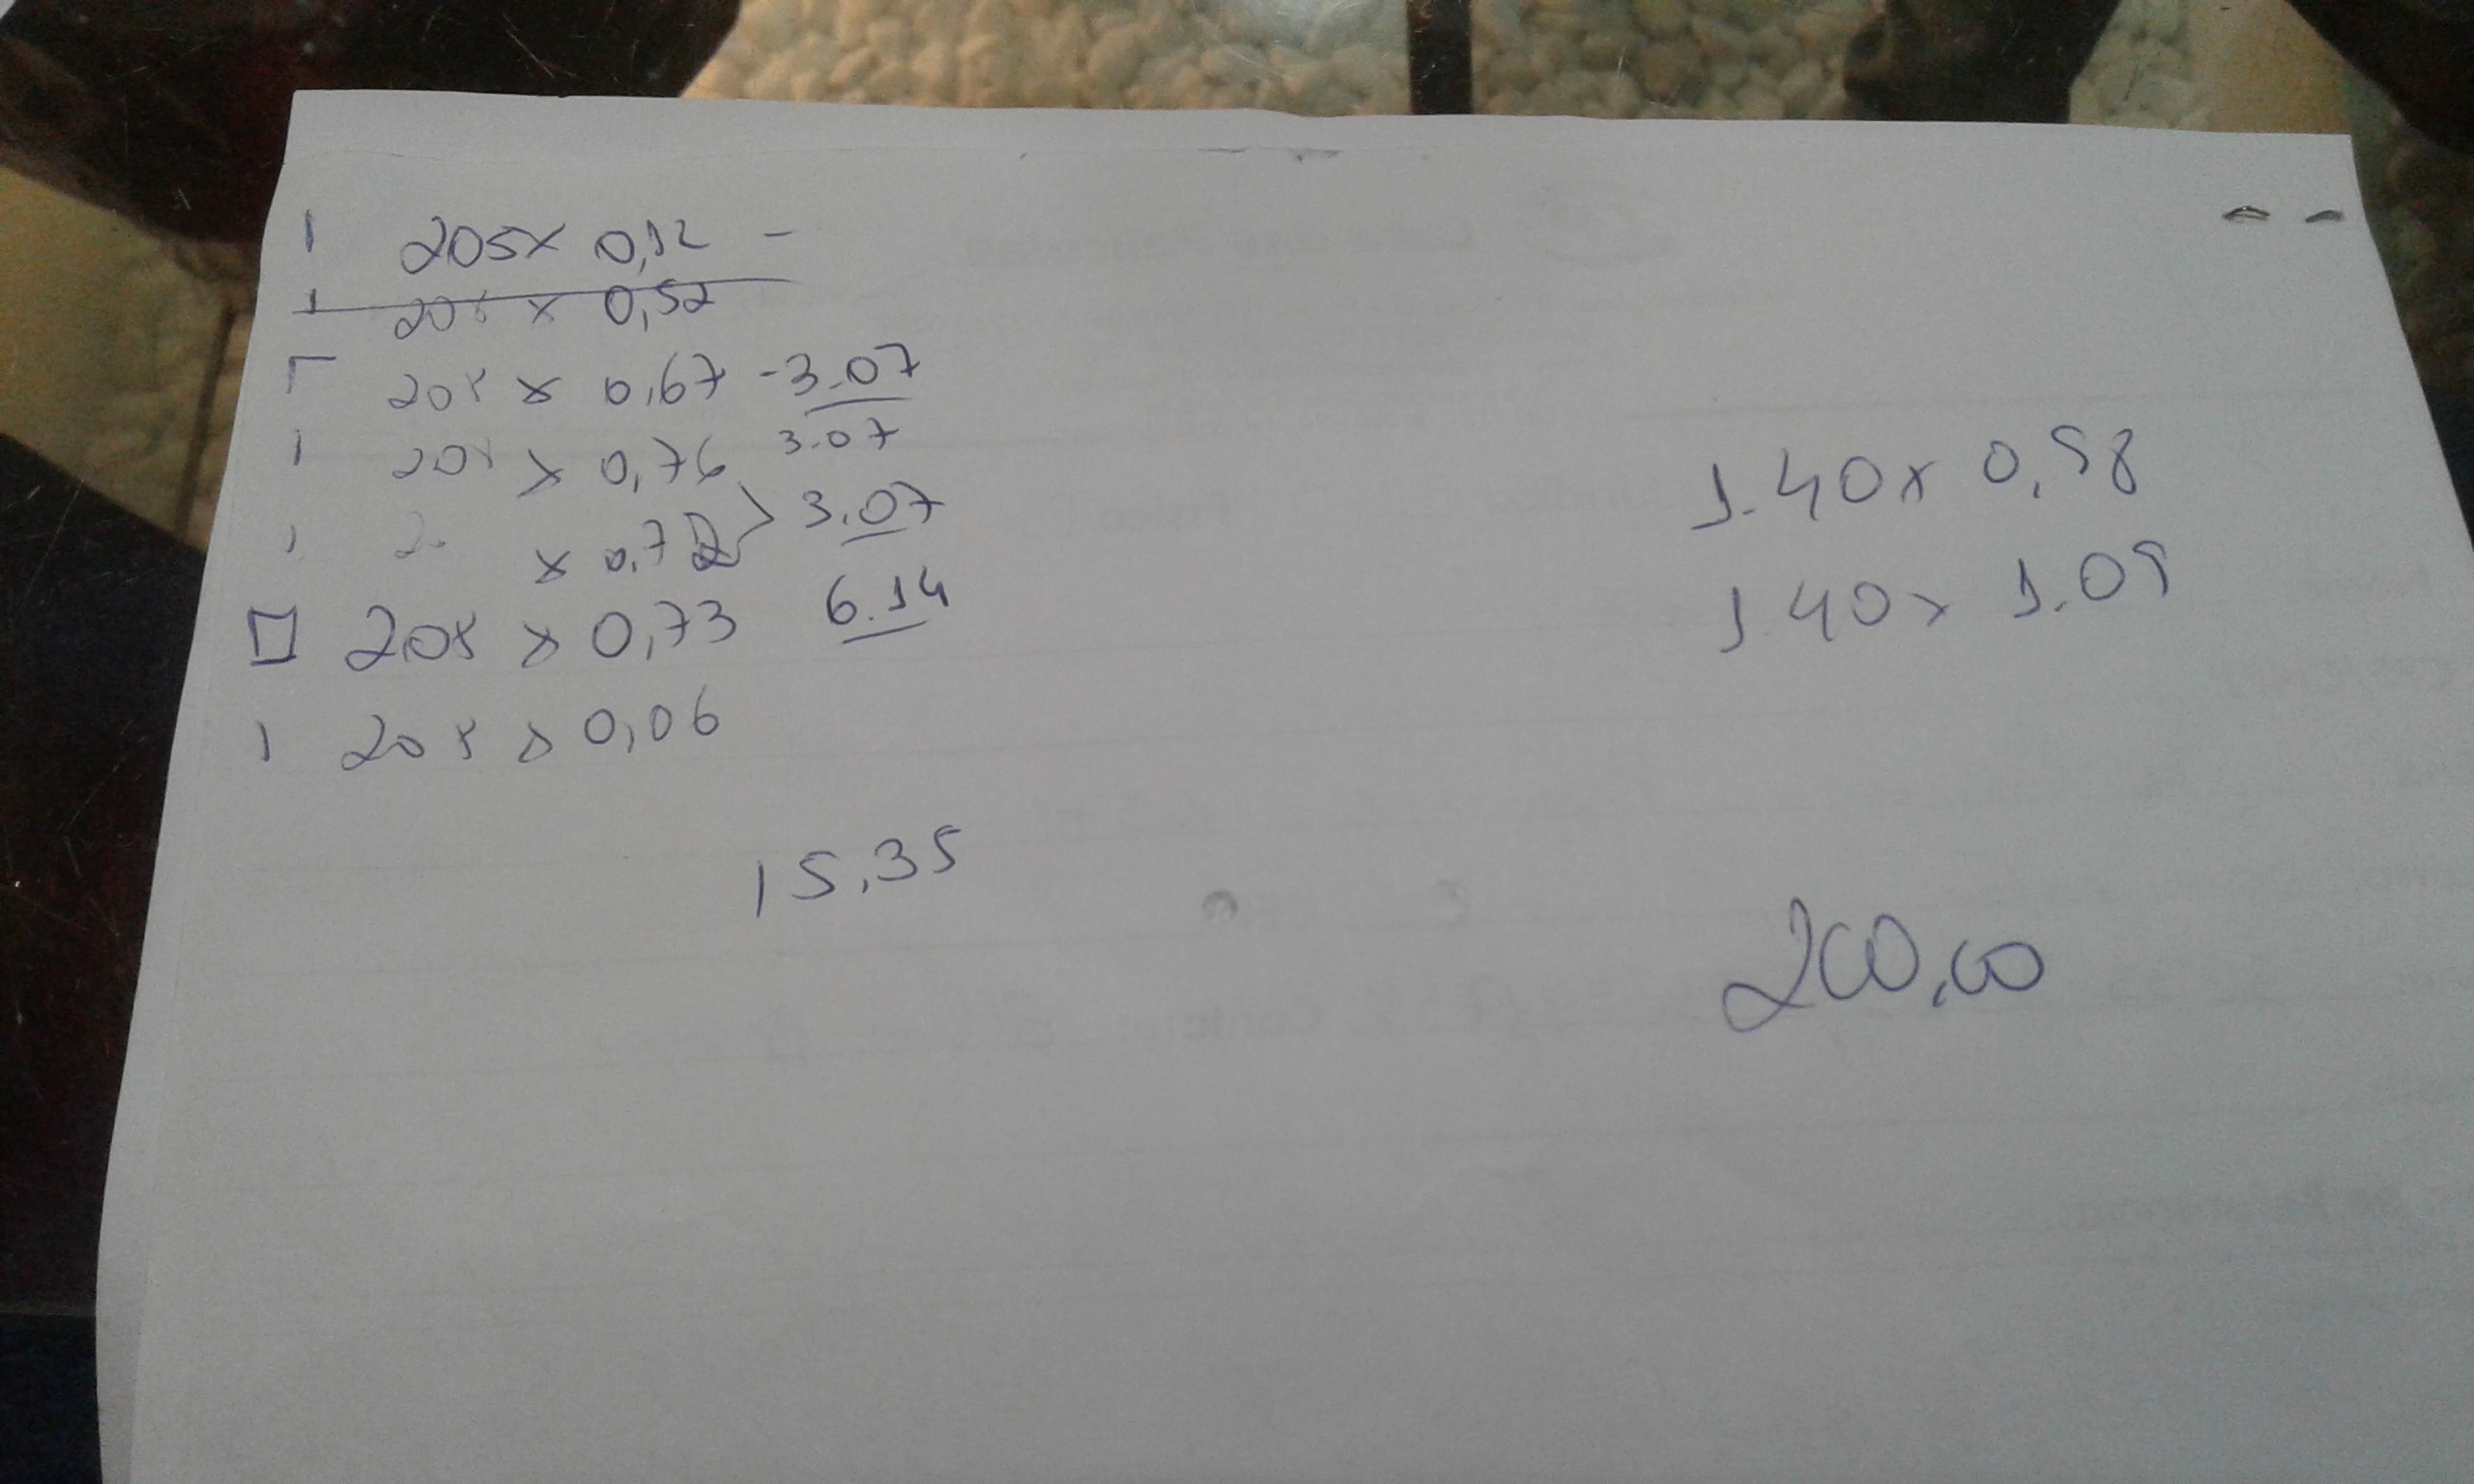 1 205x 0,12 -
1 205 x 0,52
205 x 0,67 - 3.07
1 205 x 0,76 3.07
x 0,72 3.07
205 x 0,73 6.14
1 205 x 0,06
15,35
1.40x 0,58
1.40x 1.05
200,00